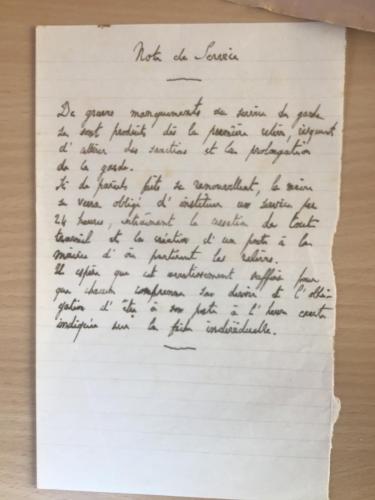 Note de Service
De graves manquements au service de garde
se sont produits dès la première relève, risquant
d'attirer des sanctions et la prolongation
de la garde.
Si de pareils faits se renouvellent, le maire
se verra obligé d'instituer un service par
24 heures, entraînant la cessation de tout
travail et la création d'un poste à la
mairie d'où partiront les relèves.
Il espère que cet avertissement suffira pour
que chacun comprenne son devoir et l'obli
gation d'être à son poste à l'heure exacte
indiquée sur la fiche individuelle.